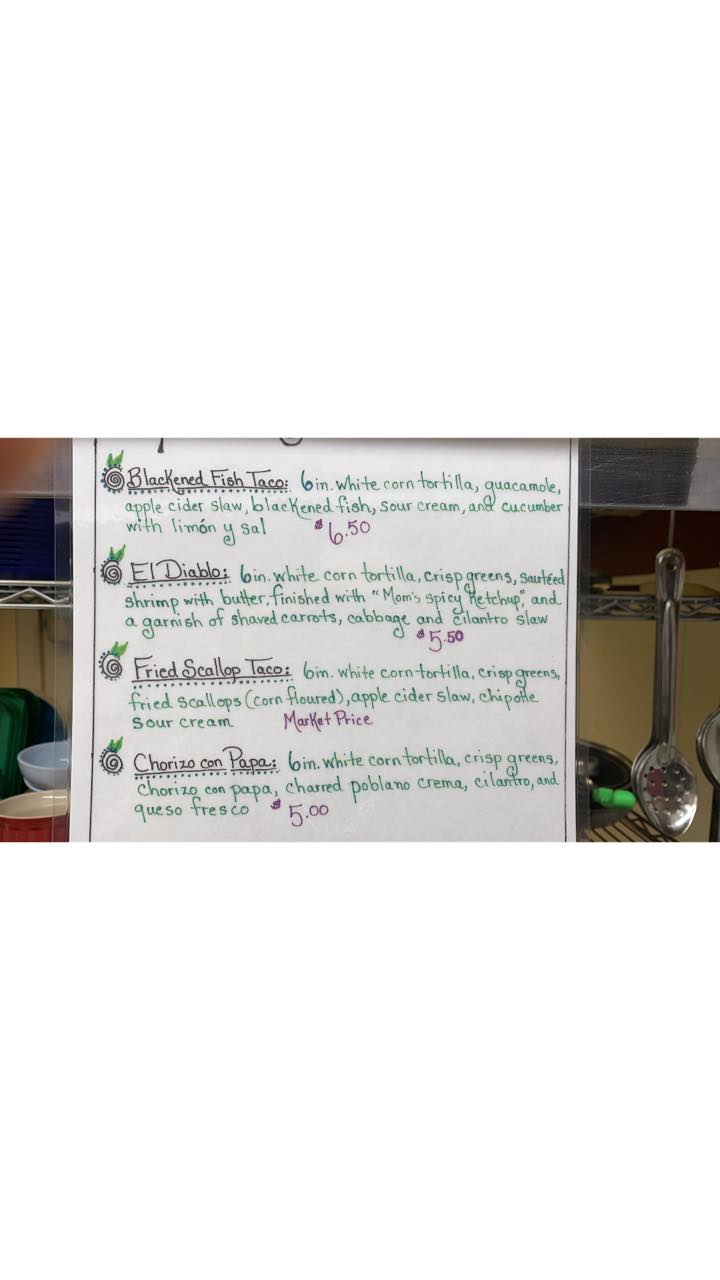 Blackened Fish Taco: 6in. white corn tortilla, guacamole,
apple cider slaw, blackened fish, sour cream, and cucumber
with limón y sal $6.50
El Diablo: 6in. white corn tortilla, crisp greens, sautéed
shrimp with butter, finished with "Mom's spicy Ketchup", and
a garnish of shaved carrots, cabbage and cilantro slaw
$5.50
Fried Scallop Taco: 6in. white corn tortilla, crisp greens,
fried scallops (corn floured), apple cider slaw, chipotle
sour cream Market Price
Chorizo con Papa: 6in. white corn tortilla, crisp greens,
chorizo con papa, charred poblano crema, cilantro, and
queso fresco $5.00